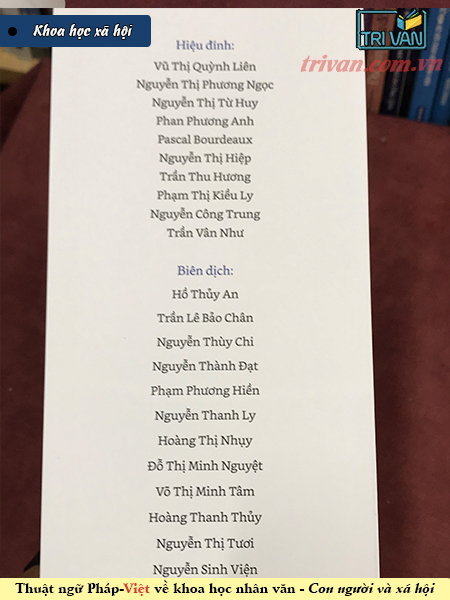 Khoa học xã hội
TRI VAN
trivan.com.vn
Hiệu đính:
Vũ Thị Quỳnh Liên
Nguyễn Thị Phương Ngọc
Nguyễn Thị Từ Huy
Phan Phương Anh
Pascal Bourdeaux
Nguyễn Thị Hiệp
Trần Thu Hương
Phạm Thị Kiều Ly
Nguyễn Công Trung
Trần Vân Như
Biên dịch:
Hồ Thủy An
Trần Lê Bảo Chân
Nguyễn Thùy Chi
Nguyễn Thành Đạt
Phạm Phương Hiền
Nguyễn Thanh Ly
Hoàng Thị Nhụy
Đỗ Thị Minh Nguyệt
Võ Thị Minh Tâm
Hoàng Thanh Thủy
Nguyễn Thị Tươi
Nguyễn Sinh Viện
Thuật ngữ Pháp-Việt về khoa học nhân văn - Con người và xã hội